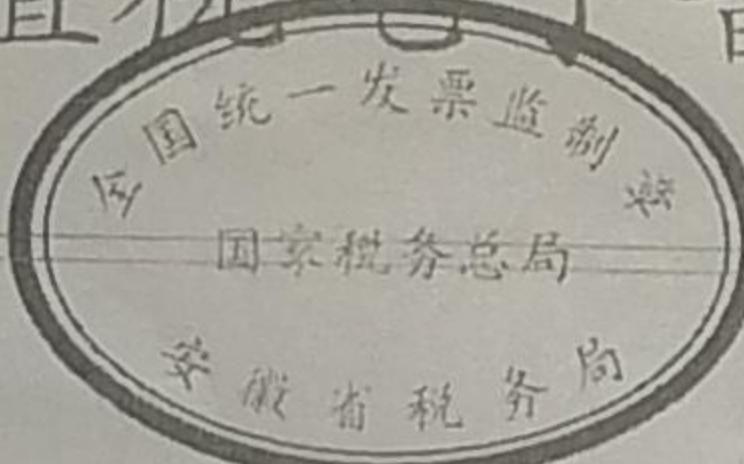 全国统一发票监制章
国家税务总局
安徽省税务局